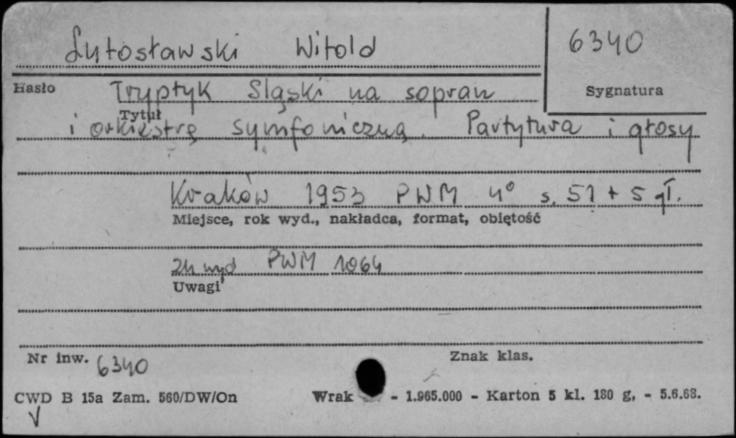 Lutosławski Witold
6340
Hasło
Sygnatura
Tryptyk Śląski na sopran
Tytuł
i orkiestrę symfoniczną. Partytura i głosy
Kraków 1953 PWM 4° s. 51 + 5 gł.
Miejsce, rok wyd., nakładca, format, obiętość
zn wyd PWM 1064
Uwagi
Nr inw. 6340
Znak klas.
CWD B 15a Zam. 560/DW/On
Wrak - 1.965.000 - Karton 5 kl. 180 g, - 5.6.68.
V